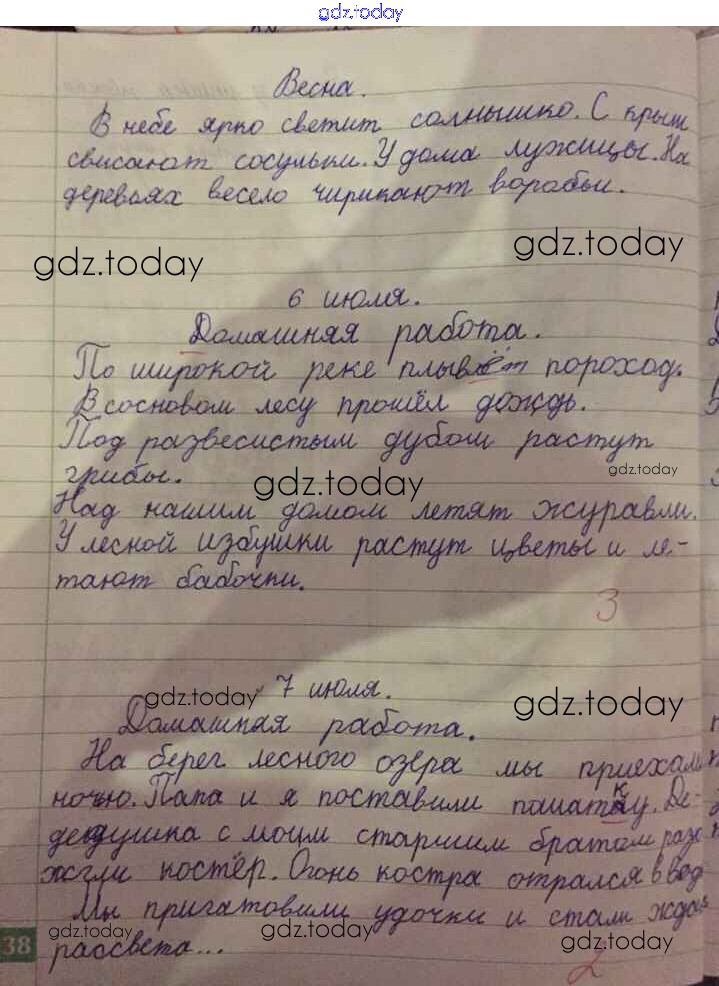 gdz.today
Весна.
В небе ярко светит солнышко. С крыш
свисают сосульки. У дома лужицы. На
деревьях весело чирикают воробьи.
gdz.today gdz.today
6 июля.
Домашняя работа.
По широкой реке плывёт пороход.
В сосновом лесу прошёл дождь.
Под развесистым дубом растут
грибы.
gdz.today gdz.today
Над нашим домом летят журавли.
У лесной избушки растут цветы и ле-
тают бабочки.
3
gdz.today 7 июля. gdz.today
Домашняя работа.
На берег лесного озера мы приехали
ночью. Папа и я поставили палатку. Де-
дедушка с моим старшим братом разо
жгли костёр. Огонь костра отрался в вод
Мы пригатовили удочки и стали жда
gdz.today gdz.today gdz.today
38 рассвета...
2